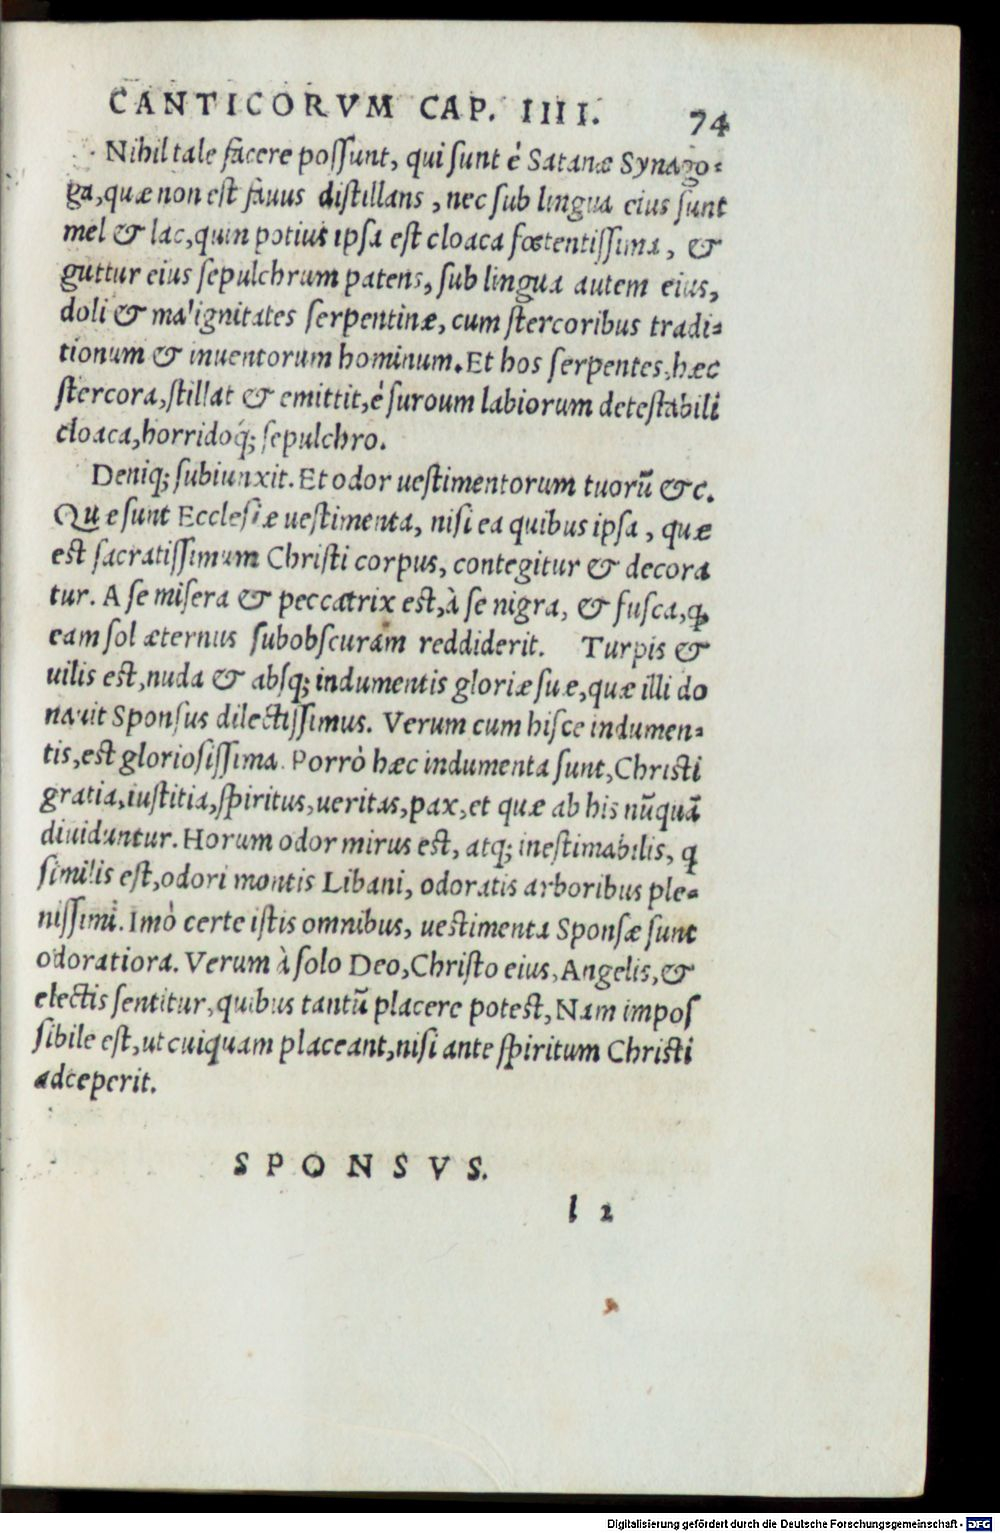 CANTICORVM CAP. IIII. 74
Nihil tale facere possunt, qui sunt è Satanæ Synago⸗
ga, quæ non est fauus distillans, nec sub lingua eius sunt
mel & lac, quin potius ipsa est cloaca fœtentissima, &
guttur eius sepulchrum patens, sub lingua autem eius,
doli & malignitates serpentinæ, cum stercoribus tradi⸗
tionum & inuentorum hominum. Et hos serpentes, hæc
stercora, stillat & emittit, è suroum labiorum detestabili
cloaca, horridoq́; sepulchro.
Deniq; subiunxit. Et odor uestimentorum tuorũ &c.
Quæ sunt Ecclesiæ uestimenta, nisi ea quibus ipsa, quæ
est sacratissimum Christi corpus, contegitur & decora
tur. A se misera & peccatrix est, à se nigra, & fusca, ꝙ
eam sol æternus subobscuram reddiderit. Turpis &
uilis est, nuda & absq; indumentis gloriæ suæ, quæ illi do
nauit Sponsus dilectissimus. Verum cum hisce indumen⸗
tis, est gloriosissima. Porrò hæc indumenta sunt, Christi
gratia, iustitia, spiritus, ueritas, pax, et quæ ab his nũquã
diuiduntur. Horum odor mirus est, atq; inestimabilis, q
similis est, odori montis Libani, odoratis arboribus ple⸗
nissimi. Imò certe istis omnibus, uestimenta Sponsæ sunt
odoratiora. Verum à solo Deo, Christo eius, Angelis, &
electis sentitur, quibus tantũ placere potest, Nam impos
sibile est, ut cuiquam placeant, nisi ante spiritum Christi
adceperit.
SPONSVS.
l 2
Digitalisierung gefördert durch die Deutsche Forschungsgemeinschaft - DFG